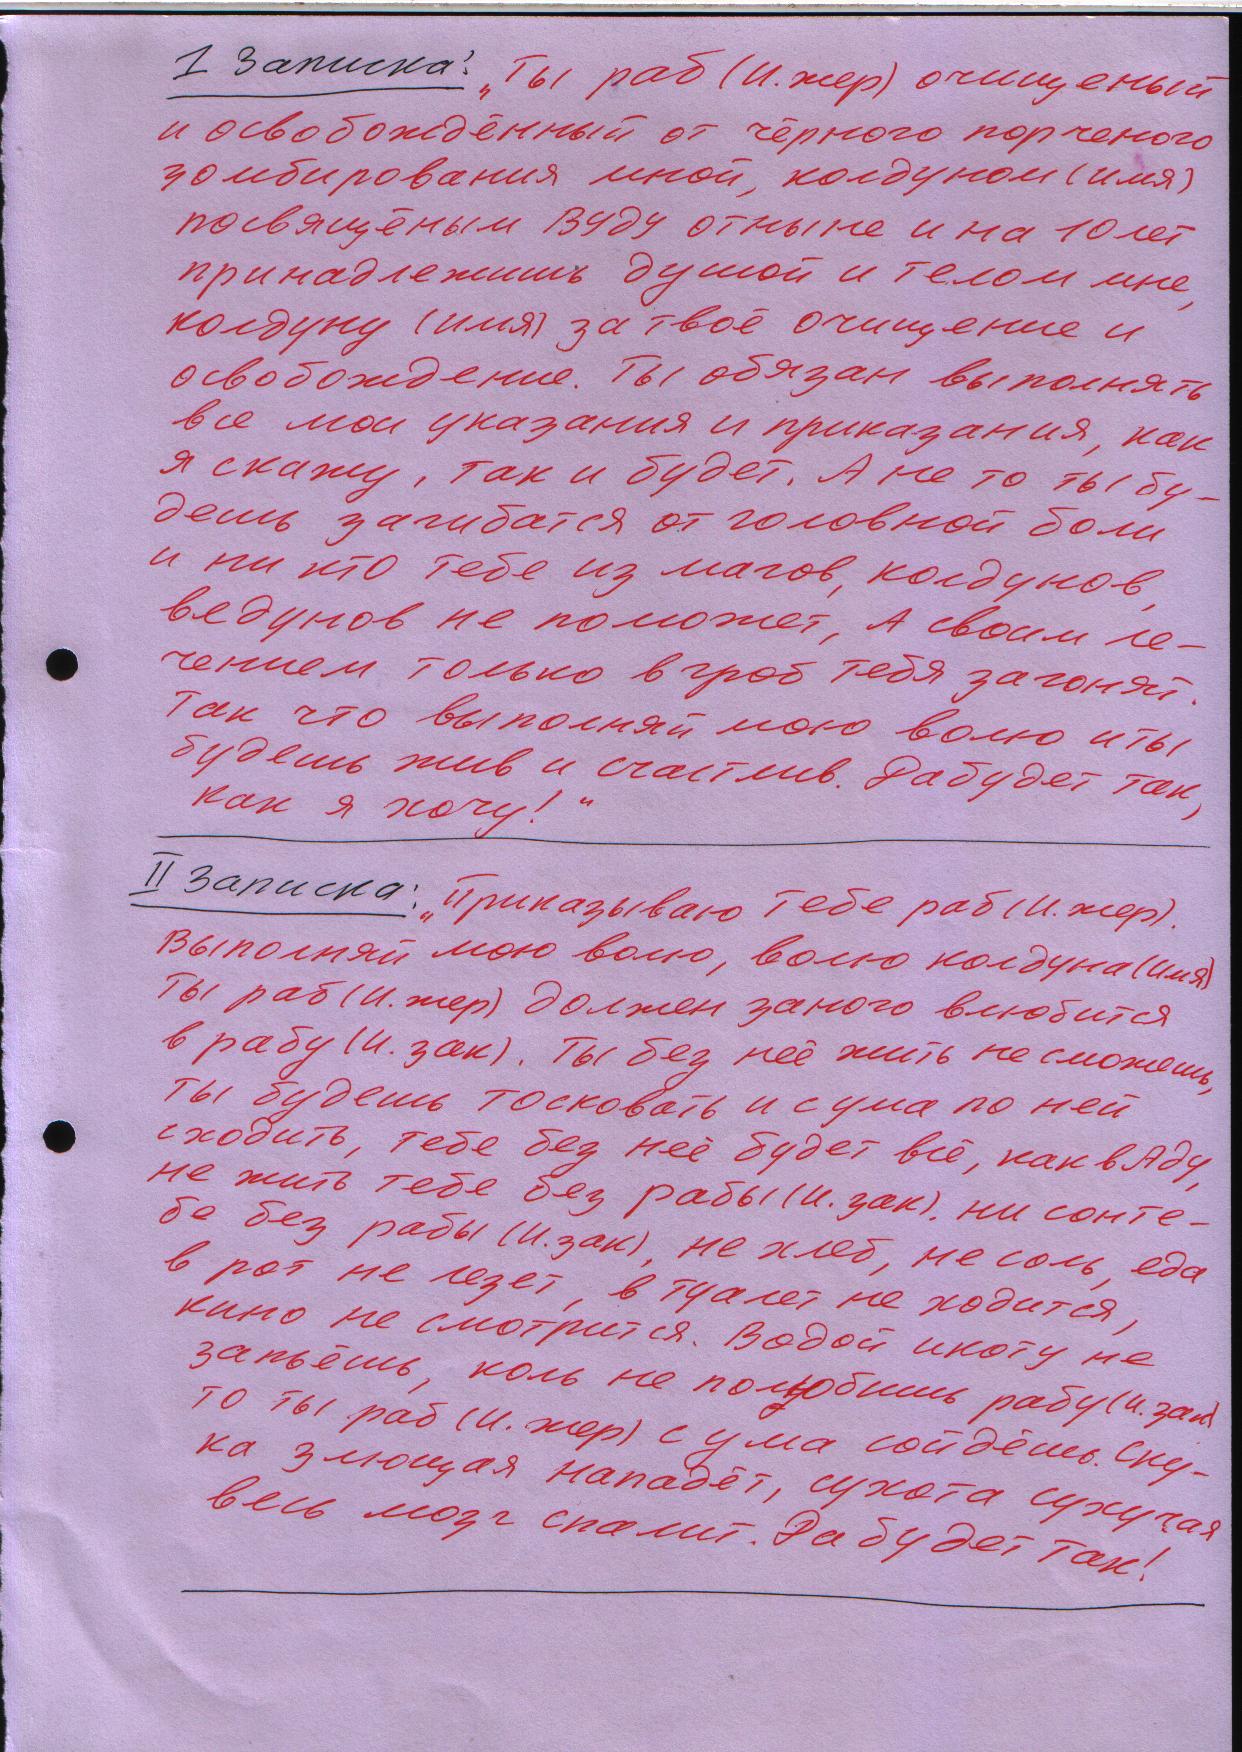 I Записка: „Ты раб (И. жер) очищеный
и освобождённый от чёрного порченого
зомбирования мной, колдуном (имя)
посвящёным Вуду отныне и на 10 лет
принадлежишь душой и телом мне,
колдуну (имя) за твоё очищение и
освобождение. Ты обязан выполнять
все мои указания и приказания, как
я скажу, так и будет. А не то ты бу-
дешь загибатся от головной боли
и ни кто тебе из магов, колдунов,
ведунов не поможет, А своим ле-
чением только в гроб тебя загонят.
Так что выполняй мою волю и ты
будешь жив и счастлив. Да будет так,
как я хочу!“
II Записка: „Приказываю тебе раб (И. жер).
Выполняй мою волю, волю колдуна (имя)
Ты раб (И. жер) должен заного влюбится
в рабу (И. зак). Ты без неё жить не сможешь,
ты будешь тосковать и с ума по ней
сходить, тебе без неё будет всё, как в Аду,
не жить тебе без рабы (И. зак). ни сон те-
бе без рабы (И. зак), не хлеб, не соль, еда
в рот не лезет, в туалет не ходится,
кино не смотрится. Водой икоту не
запьёшь, коль не полюбишь рабу (И. зак)
то ты раб (И. жер) с ума сойдёшь. Ску-
ка злющая нападёт, сухота сухучая
весь мозг спалит. Да будет так!